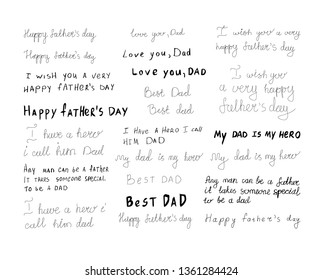 Happy father's day
Happy father's day
I wish you a very
happy father's day
Happy father's day
I have a hero
i call him Dad
Any man can be a father
it takes someone special
to be a dad
I have a hero i
call him dad
love you, Dad
Love you, Dad
Love you, DAD
Best DAD
Best dad
I have a hero I call
him DAD
My dad is my hero
Best DAD
Best DAD
Happy father's day
I wish you a very
happy father's day
I wish you
a very happy
father's day
My DAD is my hero
My dad is my hero
Any man can be a father
it takes someone special
to be a dad
Happy father's day
shutterstock.com · 1361284424